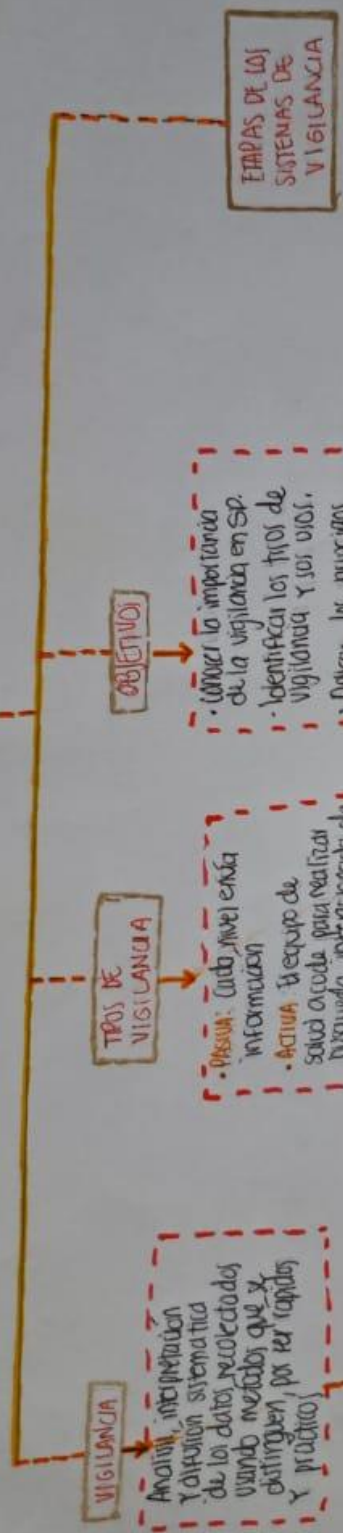 VIGILANCIA
Análisis, interpretación
y difusión sistemática
de los datos recolectados
usando métodos que se
distinguen, por ser rápidos
y prácticos
TIPOS DE
VIGILANCIA
• PASIVA: Cada nivel envía
información
• ACTIVA: El equipo de
salud acude para realizar
OBJETIVOS
• Conocer la importancia
de la vigilancia en SP.
• Identificar los tipos de
vigilancia y sus usos.
ETAPAS DE LOS
SISTEMAS DE
VIGILANCIA